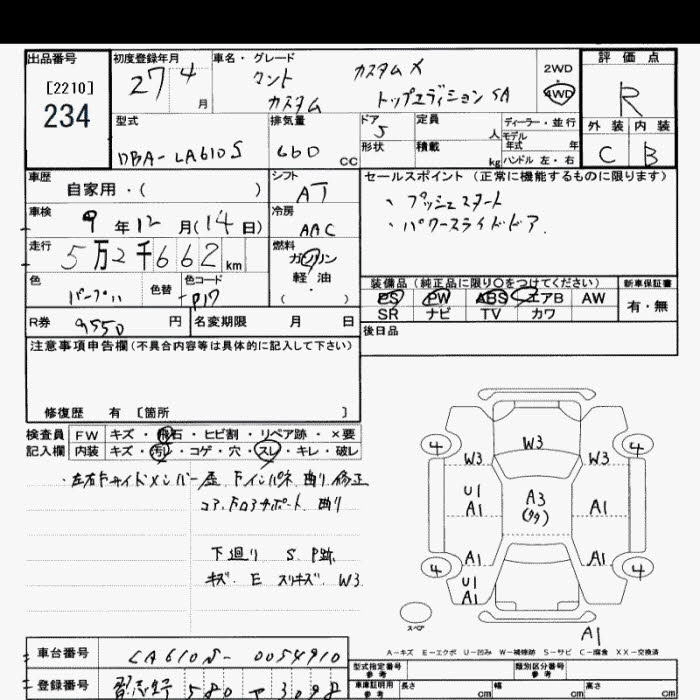 出品番号
[2210]
234
初度登録年月
27 4 月
車名・グレード
タント カスタムX
カスタム トップエディションSA
2WD
4WD
評価点
R
外装 内装
C B
型式
DBA-LA610S
排気量
660 CC
ドア
5
形状
定員
人
積載
kg
ディーラー・並行
モデル
年式 年
ハンドル 左・右
車歴
自家用・( )
シフト
AT
セールスポイント(正常に機能するものに限ります)
、プッシュスタート
、パワースライドドア
車検
9年12月(14日)
冷房
AAC
走行
5万2千662km
燃料
ガソリン
軽・油
( ・ )
色
パープル
色替
色コード
P17
装備品(純正品に限り○をつけてください)
新車保証書
PS PW ABS エアB AW
有・無
SR ナビ TV カワ
R券 9550 円
名変期限 月 日
後日品
注意事項申告欄(不具合内容等は具体的に記入して下さい)
修復歴 有 [箇所 ]
検査員
記入欄
FW キズ・飛石・ヒビ割・リペア跡・×要
内装 キズ・汚れ・コゲ・穴・スレ・キレ・破レ
・左右Fサイドメンバー歪 Fインパネ 曲り 修正
コア、Fロアサポート 曲り
下廻り S P跡
キズ、E スリキズ W3
4 W3 W3 W3 4
U1
A1
A3
(タタ)
A1
A1 A1
4 4
U1
A1
スペア
A1
A-キズ E-エクボ U-凹み W-補修跡 S-サビ C-腐食 XX-交換済
車台番号
LA610S-0054910
登録番号
習志野 580 ヤ 3098
型式指定番号
参考
類別区分番号
参考
車庫証明用
参考
長さ cm 幅 cm 高さ cm